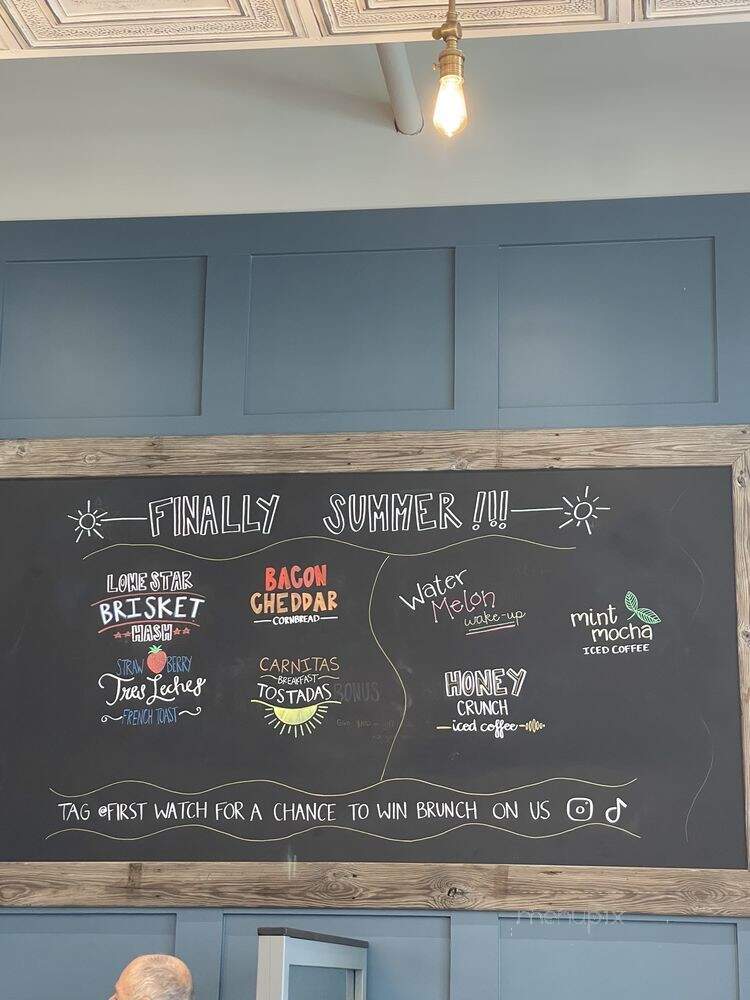 FINALLY SUMMER!!!
LONE STAR
BRISKET
HASH
BACON
CHEDDAR
CORNBREAD
STRAWBERRY
Tres Leches
FRENCH TOAST
CARNITAS
BREAKFAST
TOSTADAS
BONUS
Water
Melon
wake-up
mint
mocha
ICED COFFEE
HONEY
CRUNCH
iced coffee
TAG @FIRST WATCH FOR A CHANCE TO WIN BRUNCH ON US
menupix